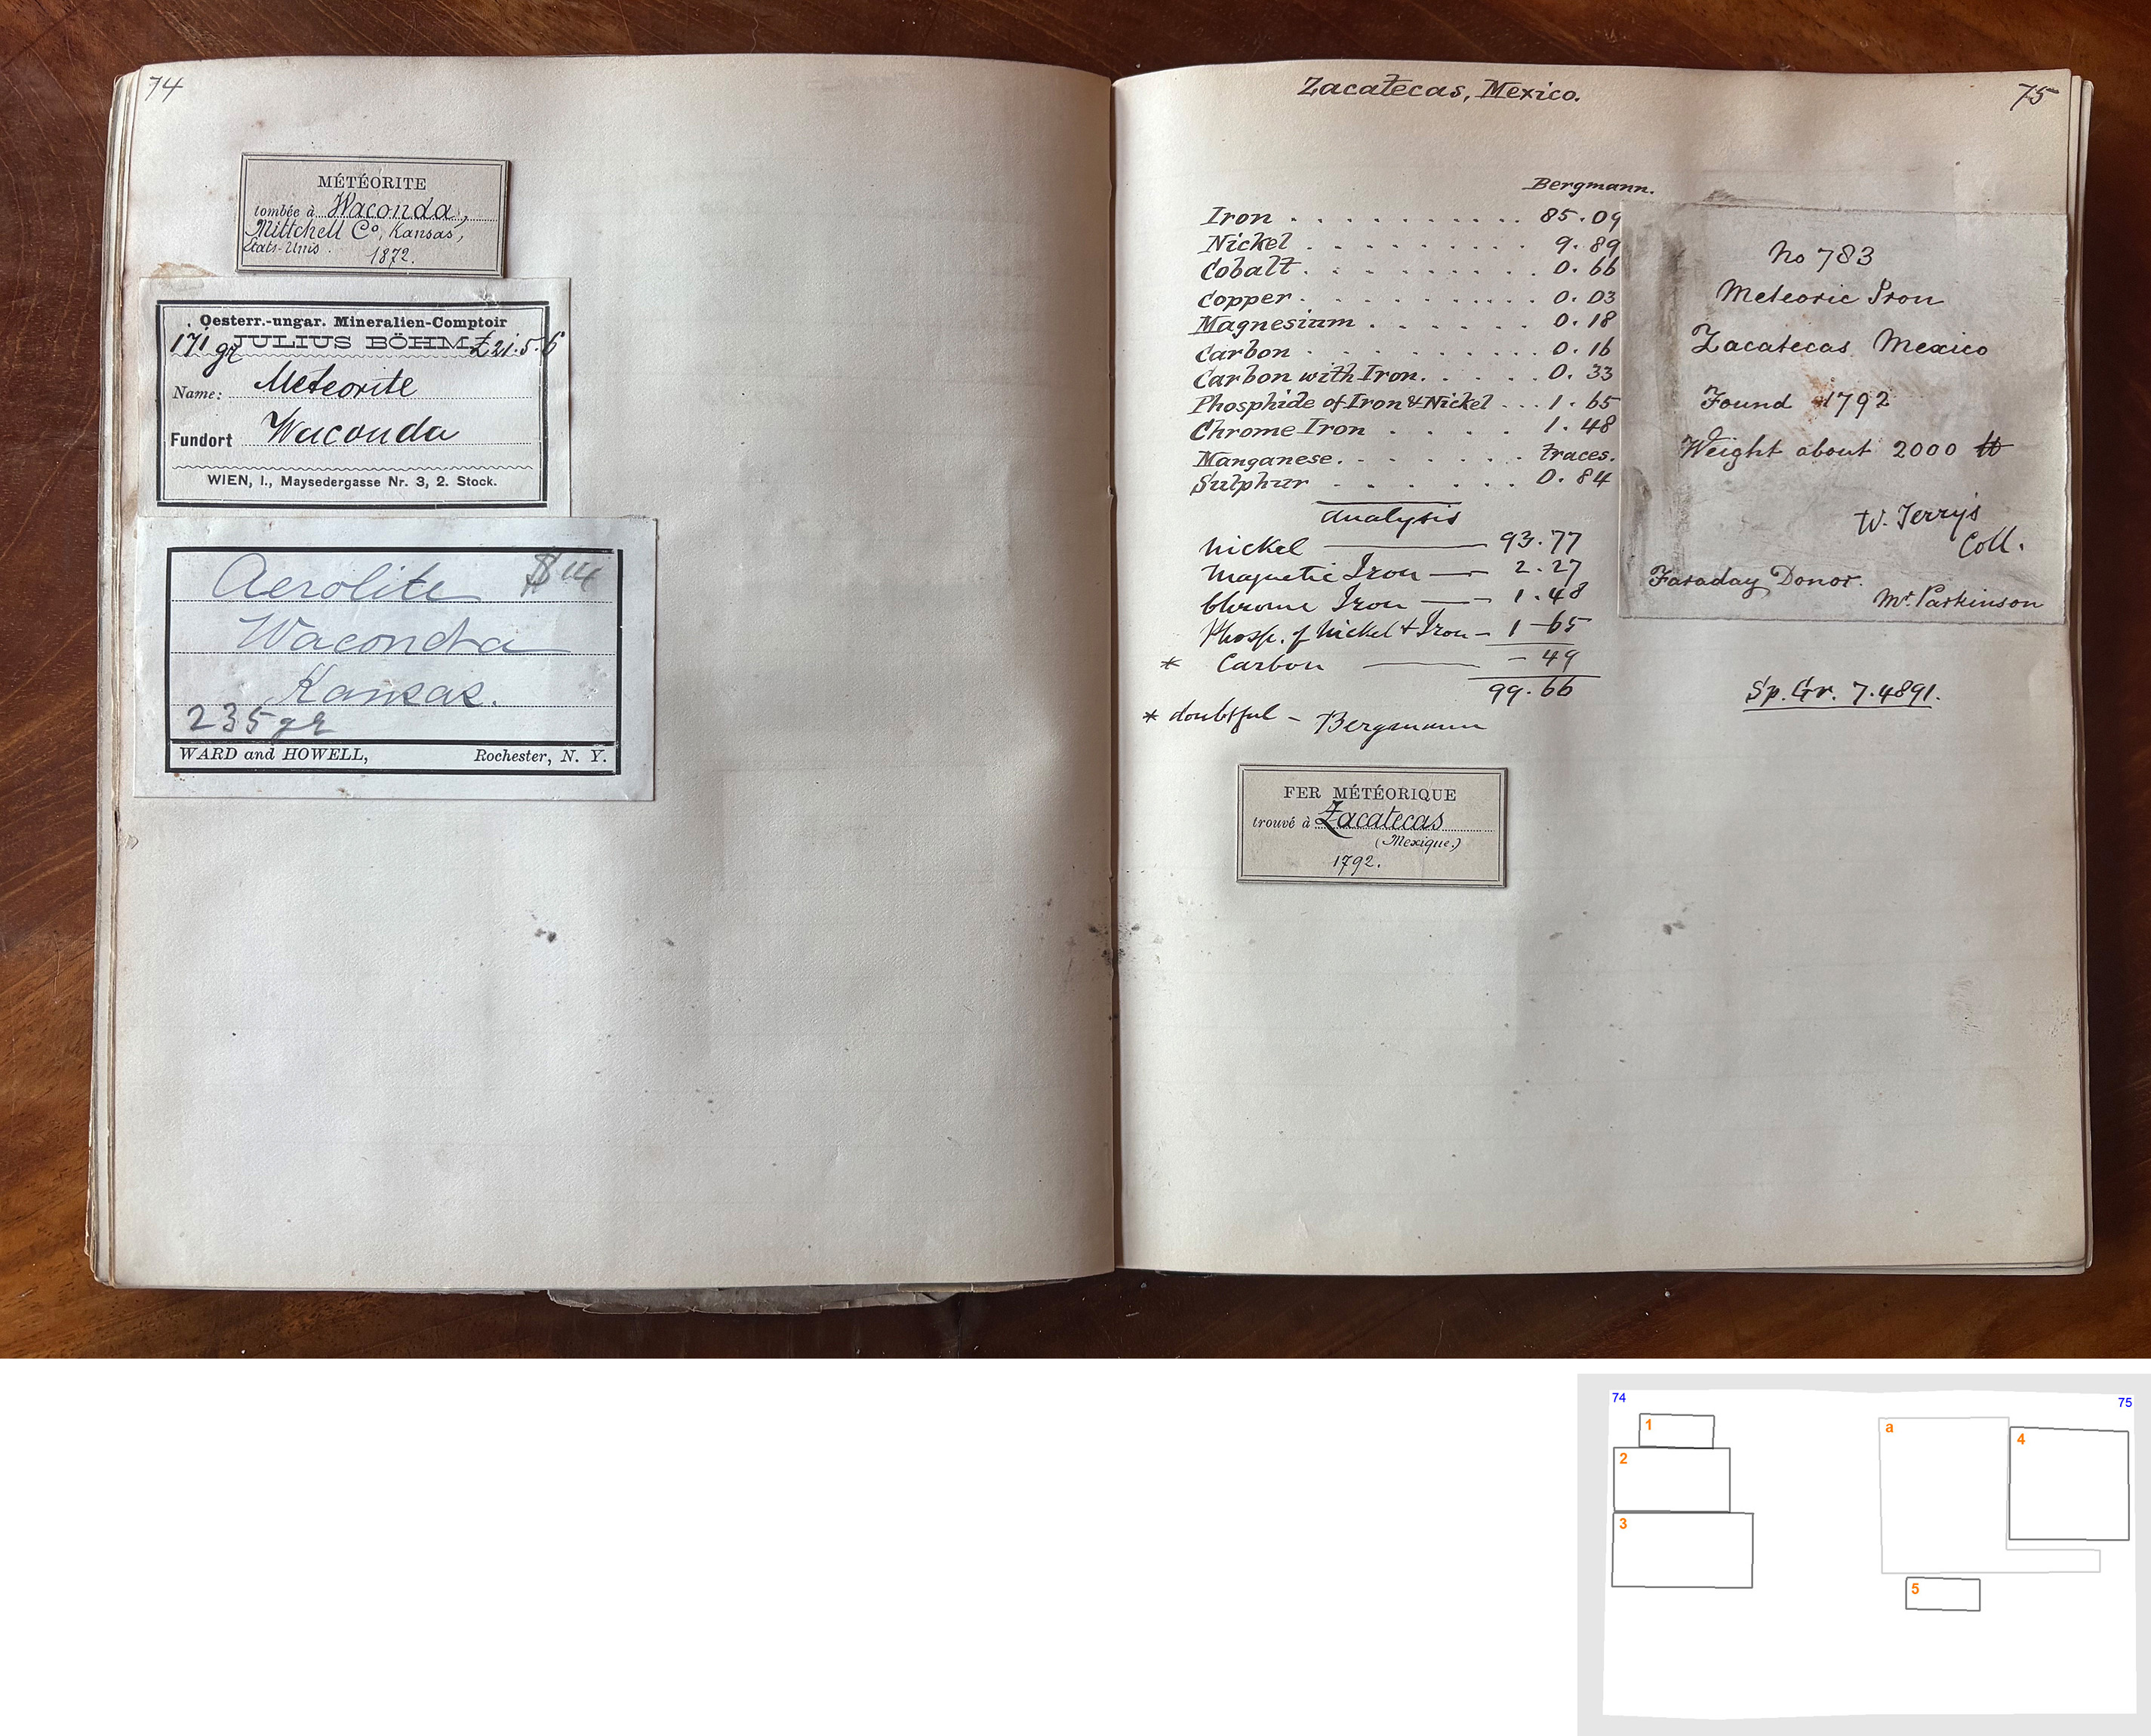 74
MÉTÉORITE
tombée à Waconda,
Mittchell Co, Kansas,
États-Unis. 1872.
Oesterr.-ungar. Mineralien-Comptoir
171 gr JULIUS BÖHM £21.5.6
Name: Meteorite
Fundort Waconda
WIEN, I., Maysedergasse Nr. 3, 2. Stock.
Aerolite $14
Waconda
Kansas.
235 gr
WARD and HOWELL, Rochester, N. Y.
Zacatecas, Mexico.
75
Bergmann.
Iron . . . . . . . . . . . 85.09
Nickel . . . . . . . . . . 9.89
Cobalt . . . . . . . . . . 0.66
Copper . . . . . . . . . . 0.03
Magnesium . . . . . . . 0.18
Carbon . . . . . . . . . . 0.16
Carbon with Iron . . . . . 0.33
Phosphide of Iron & Nickel . . . 1.65
Chrome Iron . . . . . 1.48
Manganese . . . . . . . traces.
Sulphur . . . . . . 0.84
Analysis
Nickel — 93.77
Magnetic Iron — 2.27
Chrome Iron — 1.48
Phosp. of Nickel & Iron — 1-65
* Carbon — - 49
99.66
* doubtful - Bergmann
No 783
Meteoric Iron
Zacatecas Mexico
Found 1792
Weight about 2000 lb
W. Terry's
Coll.
Faraday Donor.
Mr. Parkinson
Sp. Gr. 7.4891.
FER MÉTÉORIQUE
trouvé à Zacatecas
(Mexique.)
1792.
74
75
1
2
3
a
4
5